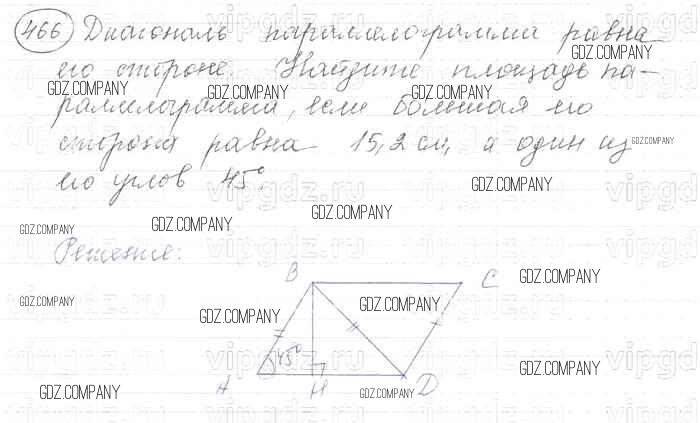 466 Диагональ параллелограмма равна
его стороне. Найдите площадь па-
раллелограмма, если большая его
сторона равна 15,2 см, а один из
его углов 45°.
Решение:
B C
45°
A H D
GDZ.COMPANY
GDZ.COMPANY GDZ.COMPANY GDZ.COMPANY
GDZ.COMPANY
GDZ.COMPANY
GDZ.COMPANY
GDZ.COMPANY GDZ.COMPANY
GDZ.COMPANY
GDZ.COMPANY GDZ.COMPANY GDZ.COMPANY
GDZ.COMPANY
GDZ.COMPANY GDZ.COMPANY
vipgdz.ru